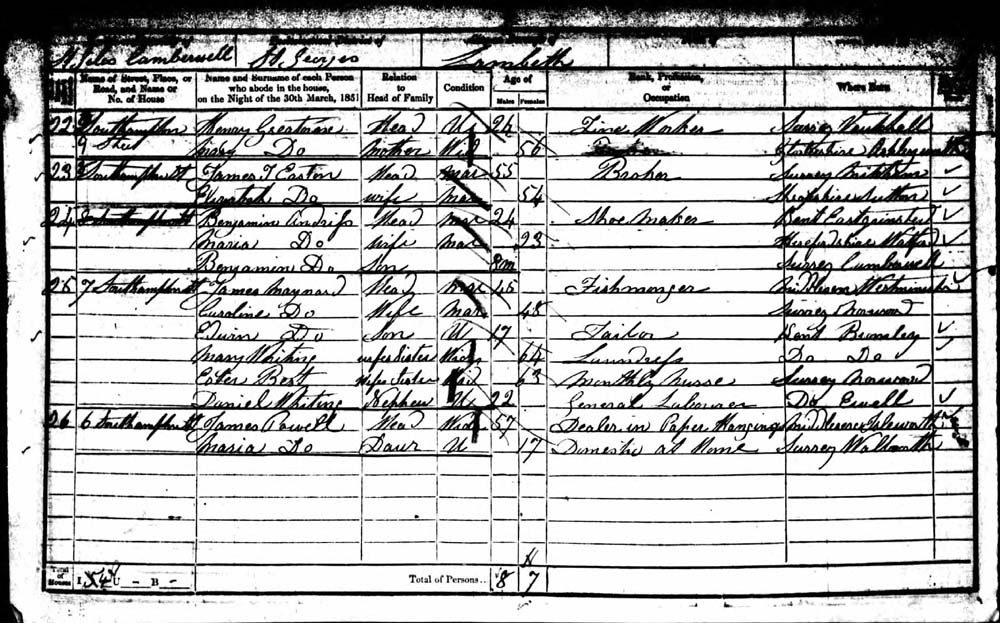 St Giles Camberwell St Georges Lambeth
Name of Street, Place, or Road, and Name or No. of House
Name and Surname of each Person who abode in the house, on the Night of the 30th March, 1851
Relation to Head of Family
Condition
Age of
Males Females
Rank, Profession, or Occupation
Where Born
22 Southampton Henry Greatmore Head U 24 Zinc Worker Surrey Vauxhall
Street Mary Do Mother Wid 56
23 Southampton St James T Easton Head Mar 55 Broker Surrey Mitcham
Elizabeth Do Wife Mar 54 Shropshire Sutton
24 Southampton St Benjamin Head Mar 24 Shoe Maker Kent
Maria Do Wife Mar 23 Watford
Benjamin Do Son 8m Surrey Camberwell
25 7 Southampton St James Maynard Head Mar 46 Fishmonger Middlesex Westminster
Caroline Do Wife Mar 48 Surrey Norwood
Edwin Do Son U 17 Tailor Kent Bromley
Mary Whiting Wifes Sister 64 Laundress Do Do
Ester Best Wifes Sister Wid 63 Monthly Nurse Surrey Norwood
Daniel Whiting Nephew U 22 General Labourer Do Ewell
26 6 Southampton St James Powell Head Wid 57 Dealer in Paper Hangings Middlesex Isleworth
Maria Do Daur U 17 Domestic at Home Surrey Walworth
Total of Houses I U – B – Total of Persons.. 8 7